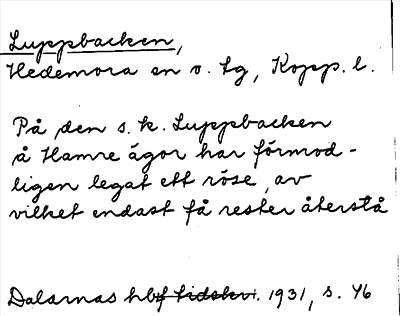 Luppbacken,
Hedemora sn o. tg, Kopp. l.
På den s. k. Luppbacken
å Hamre ägor har förmod-
ligen legat ett röse, av
vilket endast få rester återstå
Dalarnas hbf tidskr. 1931, s. 46